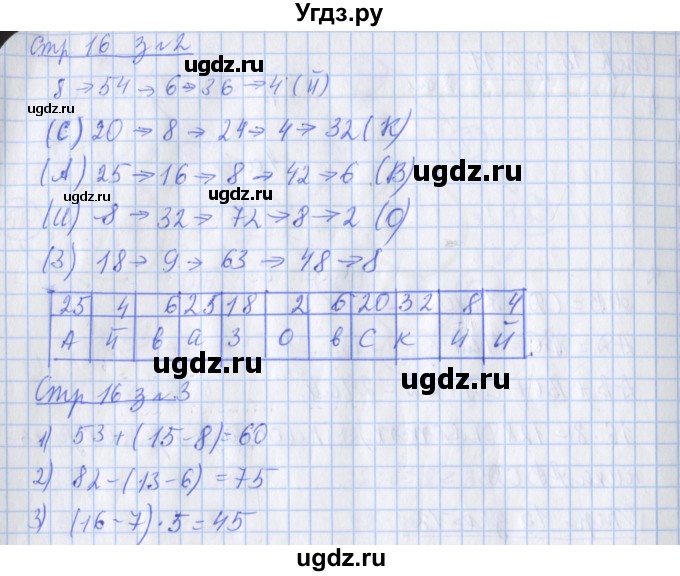 Угдз.ру
Стр 16 з №2
ugdz.ru
8 → 54 → 6 → 36 → 4 (Й)
ugdz.ru ugdz.ru
(С) 20 → 8 → 24 → 4 → 32 (К)
(А) 25 → 16 → 8 → 42 → 6 (В) ugdz.ru
ugdz.ru
(И) 8 → 32 → 72 → 8 → 2 (О)
ugdz.ru
(З) 18 → 9 → 63 → 48 → 8
ugdz.ru
25 4 6 25 18 2 6 20 32 8 4
А й в а З О в С К И Й
ugdz.ru
ugdz.ru
Стр 16 з №3
ugdz.ru
1) 53 + (15 - 8) = 60
2) 82 - (13 - 6) = 75
ugdz.ru
3) (16 - 7) · 5 = 45
ugdz.ru